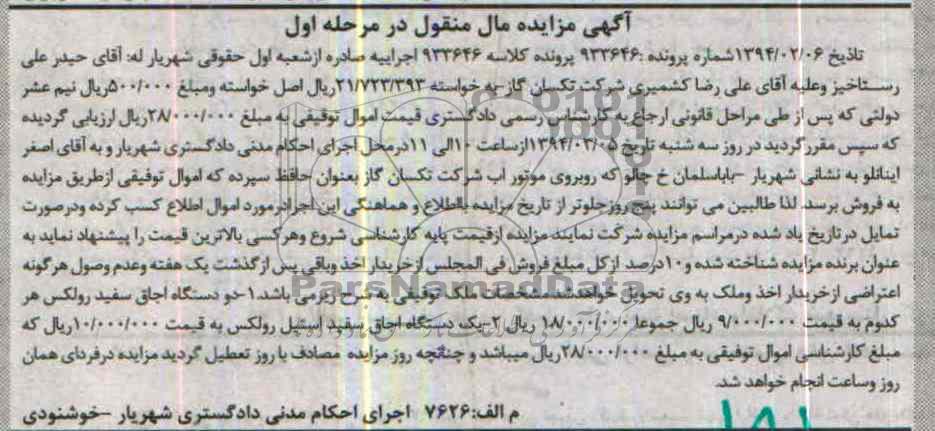 آگهی مزایده مال منقول در مرحله اول
تاذیخ ۱۳۹۴/۰۲/۰۶شماره پرونده :۹۳۳۶۴۶ پرونده کلاسه ۹۳۳۶۴۶ اجراییه صادره ازشعبه اول حقوقی شهریار له: آقای حیدر علی
رستاخیز وعلیه آقای علی رضا کشمیری شرکت تکسان گاز-به خواسته ۲۱/۷۲۳/۳۹۳ریال اصل خواسته ومبلغ ۵۰۰/۰۰۰ریال نیم عشر
دولتی که پس از طی مراحل قانونی ارجاع به کارشناس رسمی دادگستری قیمت اموال توقیفی به مبلغ ۲۸/۰۰۰/۰۰۰ریال ارزیابی گردیده
که سپس مقررگردید در روز سه شنبه تاریخ ۱۳۹۴/۰۳/۰۵ازساعت ۱۰الی ۱۱درمحل اجرای احکام مدنی دادگستری شهریار و به آقای اصغر
اینانلو به نشانی شهریار -باباسلمان خ چالو که روبروی موتور اب شرکت تکسان گاز بعنوان حافظ سپرده که اموال توقیفی ازطریق مزایده
به فروش برسد. لذا طالبین می توانند پنج روزجلوتر از تاریخ مزایده بااطلاع و هماهنگی این اجرادرمورد اموال اطلاع کسب کرده ودرصورت
تمایل درتاریخ یاد شده درمراسم مزایده شرکت نمایند مزایده ازقیمت پایه کارشناسی شروع وهرکسی بالاترین قیمت را پیشنهاد نماید به
عنوان برنده مزایده شناخته شده و۱۰درصد ازکل مبلغ فروش فی المجلس ازخریدار اخذ وباقی پس ازگذشت یک هفته وعدم وصول هرگونه
اعتراضی ازخریدار اخذ وملک به وی تحویل خواهدشد.مشخصات ملک توقیفی به شرح زیرمی باشد.۱-دو دستگاه اجاق سفید رولکس هر
کدوم به قیمت ۹/۰۰۰/۰۰۰ ریال جموعا ۱۸/۰۰۰/۰۰۰ ریال ۲-یک دستگاه اجاق سفید استیل رولکس به قیمت ۱۰/۰۰۰/۰۰۰ریال که
مبلغ کارشناسی اموال توقیفی به مبلغ ۲۸/۰۰۰/۰۰۰ریال میباشد و چنانچه روز مزایده مصادف با روز تعطیل گردید مزایده درفردای همان
روز وساعت انجام خواهد شد.
م الف:۷۶۲۶ اجرای احکام مدنی دادگستری شهریار -خوشنودی
ParsNamadData